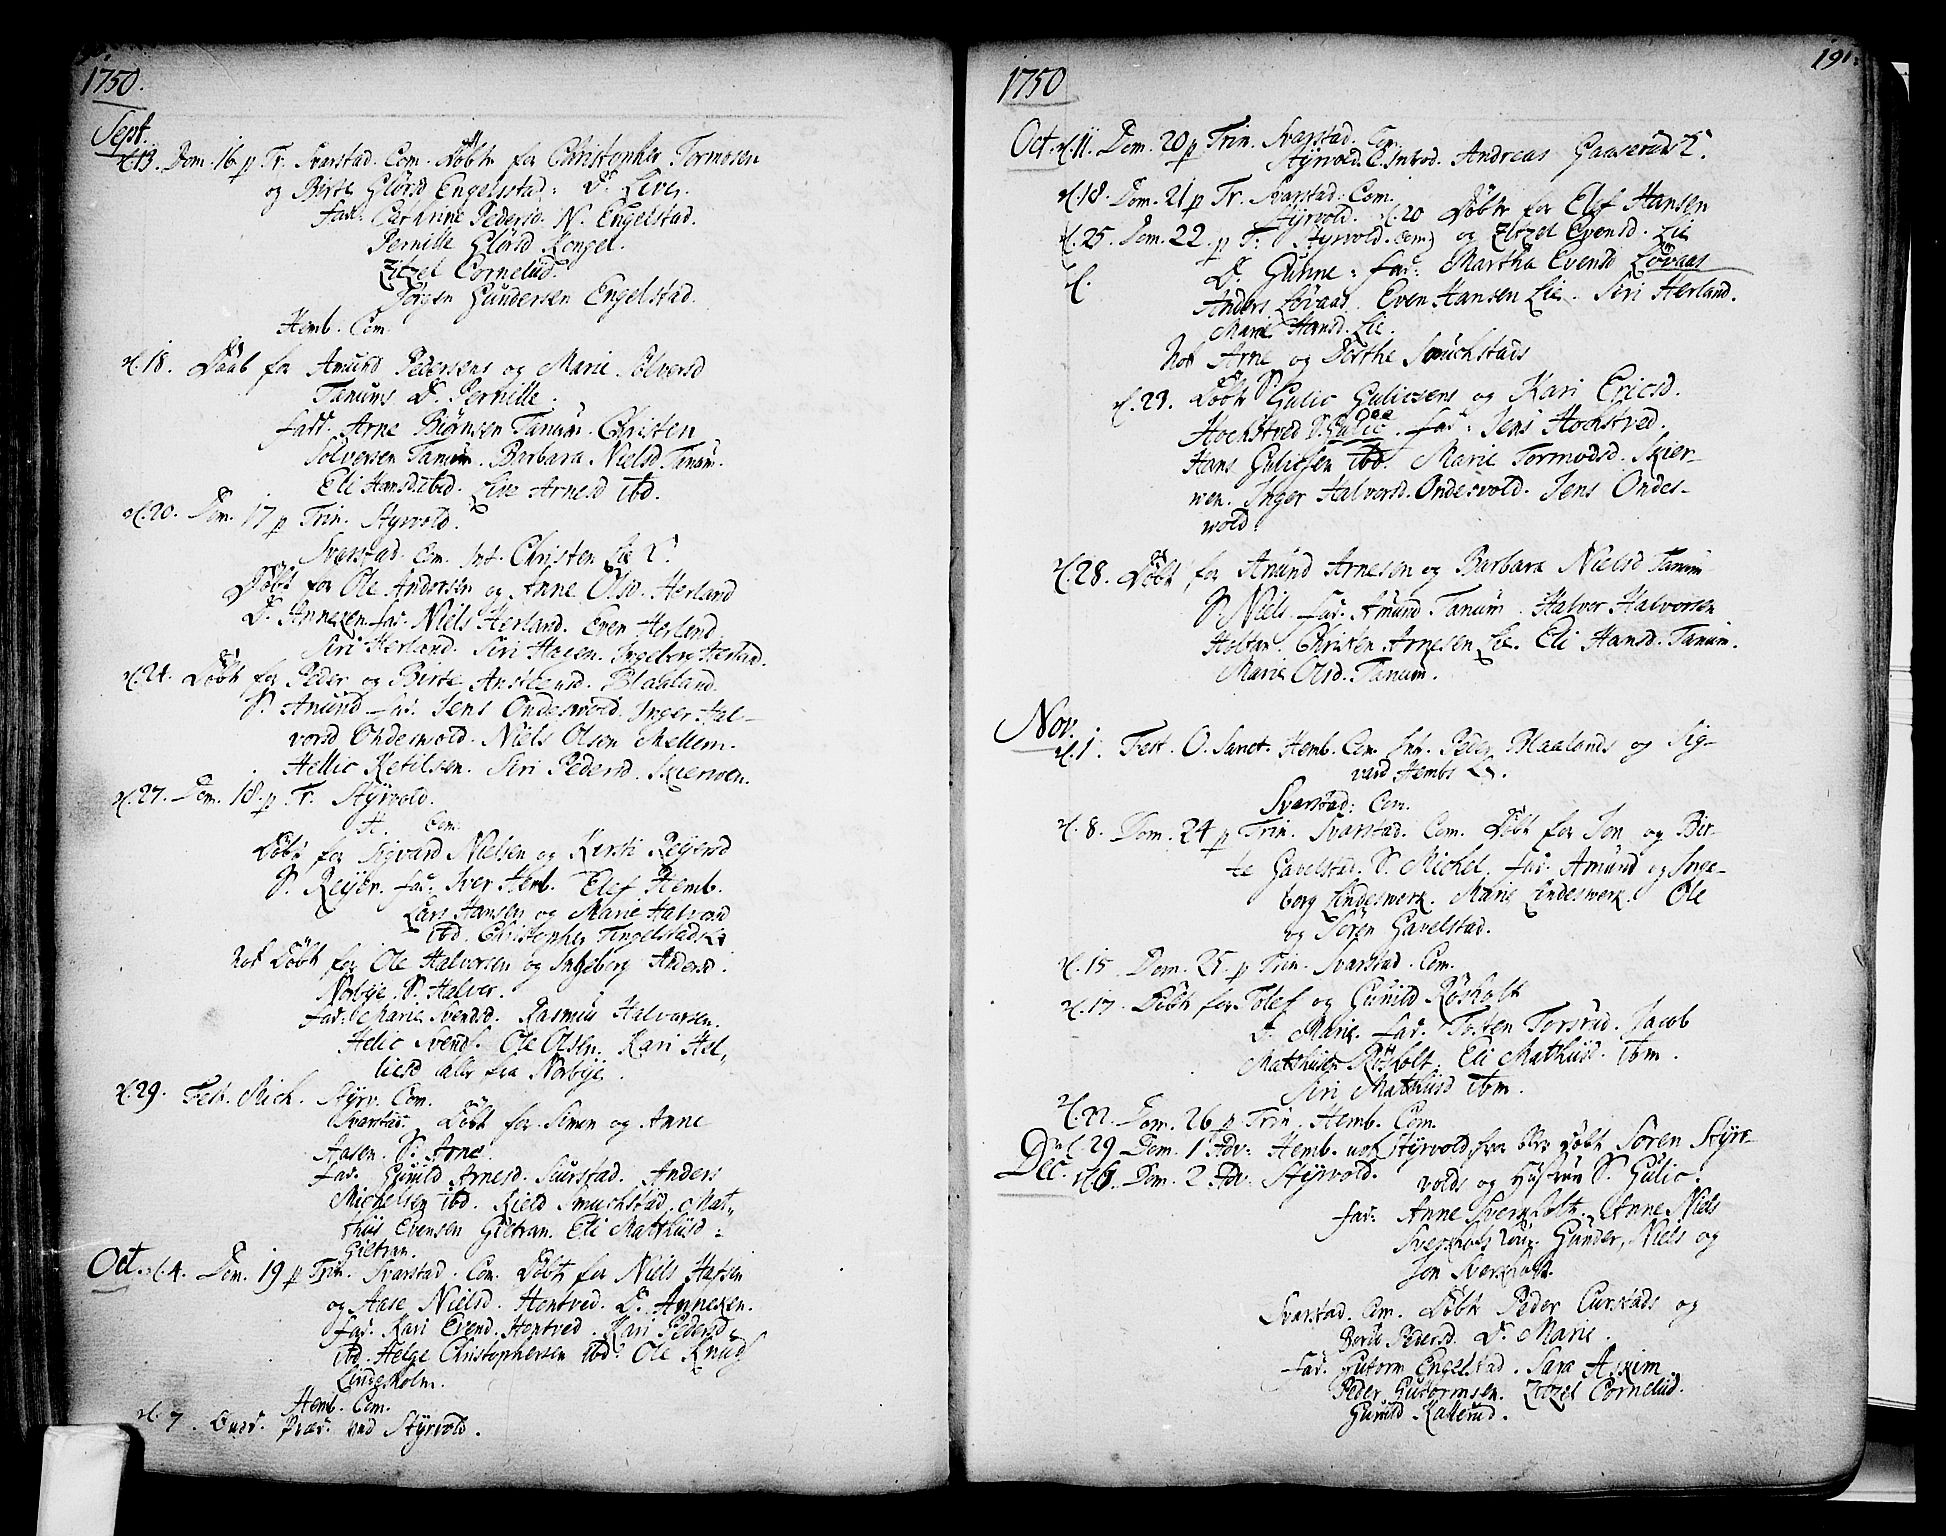 1750.
Sept.
d. 13. Dom. 16. p Tr. Svarstad. Com. Døbt for Christopher Tormosen
og Birte Glørsd Engelstad: D. Live.
fad: Car Anne Pedersd. N. Engelstad.
Pernille Glørsd Kongel.
Zitzel Cornelisd.
Jørgen Gundersen Engelstad.
Hemb. Com.
d. 18. Daab for Amund Pedersens og Marie Solversd
Tanums D. Pernille.
fadd. Arne Biørnsen Tanum. Christen
Solversen Tanum. Barbara Nielsd Tanum.
Eli Hansd. ibid. Live Arnesd ibd.
d. 20. Dom. 17 p Trin. Styrvold.
Svarstad. Com. Int. Christen Lie
Døbt for Ole Andersen og Anne Olsd. Herland
D. Anneken fad. Niels Herland. Even Herland
Siri Herland. Siri Hagen. Ingeborg Herland.
d. 24. Døbt for Peder og Birte Anstensd. Blaaland.
S. Anund fad. Jens Ondeswold. Inger Hal-
vorsd Ondeswold. Niels Olsen Mellem.
Hellic Ketilsen. Siri Pedersd. Skierven.
d. 27. Dom. 18. p Tr. Styrvold.
H. Com.
Døbt for Sigvard Nielsen og Kirsti Reyersd
S. Reyer. fad. Iver Hemb. Elef Hemb.
Lars Hansen og Marie Halvord
ibd. Christopher Tingelstad
nok Døbt for Ole Halversen og Ingeborg Andersd.
Norbye. S. Halver.
fad: Marie Svendsd. Rasmus Halvorsen.
Helic Svends. Ole Olsen. Kari Hel-
licsd alle fra Norbye.
d. 29. Fest. Mich. Styrv. Com.
Svarstad. Døbt for Simen og Anne
Aasen. S. Arne.
fad. Gunild Arnesd. Surstad. Anders
Michelsen ibd. Kield Smuchstad. Mat-
thiis Evensen Giltran. Eli Matthiisd
Giltran.
Oct. d. 4. Dom. 19 p Trin. Svarstad. Com. Døbt for Niels Hansen
og Aase Nielsd. Hontved. D. Anneken.
fad. Kari Evend. Hontved. Kari Pedersd
ibd. Helge Christophersen ibd. Ole Knuds
Lindesholm.
Hemb. Com.
d. 7. Præd. ved Styrvold.
1750
191.
Oct. d. 11. Dom. 20 p Trin. Svarstad. Com.
Styrvold. C. Introd. Andreas Gaaseruds
d. 18. Dom. 21 p Tr. Svarstad. Com.
Styrvold. d. 20 Døbt for Elef Hansen
d. 25. Dom. 22. p T. Styrvold. Com) og Zitzel Evensd. Lie
d. D. Gunne: fad: Martha Evensd Løvaas
Anders Løvaas. Even Hansen Lie. Siri Herland.
Marie Hansd. Lie.
Nok Arne og Dorthe Smuchstads
d. 23. Døbt Gulic Gulicsens og Kari Ericsd.
Hochstved S. Gulic. fad: Jens Hochstved.
Hans Gulicsen ibd. Marie Tormodsd. Skier-
wen. Inger Halversd. Ondesvold. Jens Ondes-
wold.
d. 28. Døbt for Anund Arnesen og Barbara Nielsd Tanum
S. Niels. fad. Amund Tanum. Halver Halversen
Holtan. Christen Arnesen Lie. Eli Hansd. Tanum.
Marie Olsd. Tanum.
Nov.
d. 1. Fest. O. Sanct. Hemb. Com. Int. Peder Blaalands og Sig-
vard Hembs
Svarstad: Com.
d. 8. Dom. 24 p Trin. Svarstad. Com. Døbt for Jon og Bir-
te Gavelstad. S. Michel. fad. Amund og Inge-
borg Lindeswerk. Marie Lindeswerk. Ole
og Søren Gavelstad.
d. 15 Dom. 25. p Trin. Svarstad. Com.
d. 17. Døbt for Tolef og Gunild Røsholt
D. Marie. fad. Tosten Torsrud. Jacob
Matthiisen Røsholt. Eli Mathiisd. ibm.
Siri Mathiisd ibm.
d. 22. Dom. 26 p Trin. Hemb. Com.
d. 29 Dom. 1 Adv: Hemb. nok Styrvold, hvor blev døbt Søren Styr-
Dec. d. 6. Dom. 2 Adv: Styrvold. volds og Hustrue S. Gulic.
fad: Anne Sverkholt. Anne Niels
Sverkholt. Gunder, Niels og
Jon Sverkholt.
Svarstad. Com. Døbt Peder Curstads og
Pedersd. D. Marie.
fad. Gutorm Engelstad. Sara Askim
Peder Gutormsen. Zitzel Cornelisd.
Gunild Kallerud.